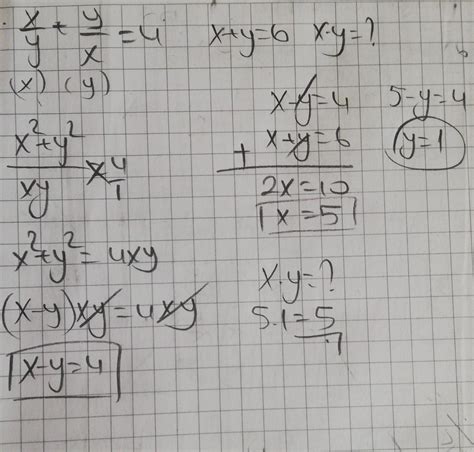 x/y + y/x = 4   x+y=6   x·y=?
(x) (y)
x²+y²/xy × 4/1
x²+y²=4xy
(x-y)xy=4xy
x-y=4
x-y=4
+ x+y=6
2x=10
x=5
5-y=4
y=1
x·y=?
5.1=5